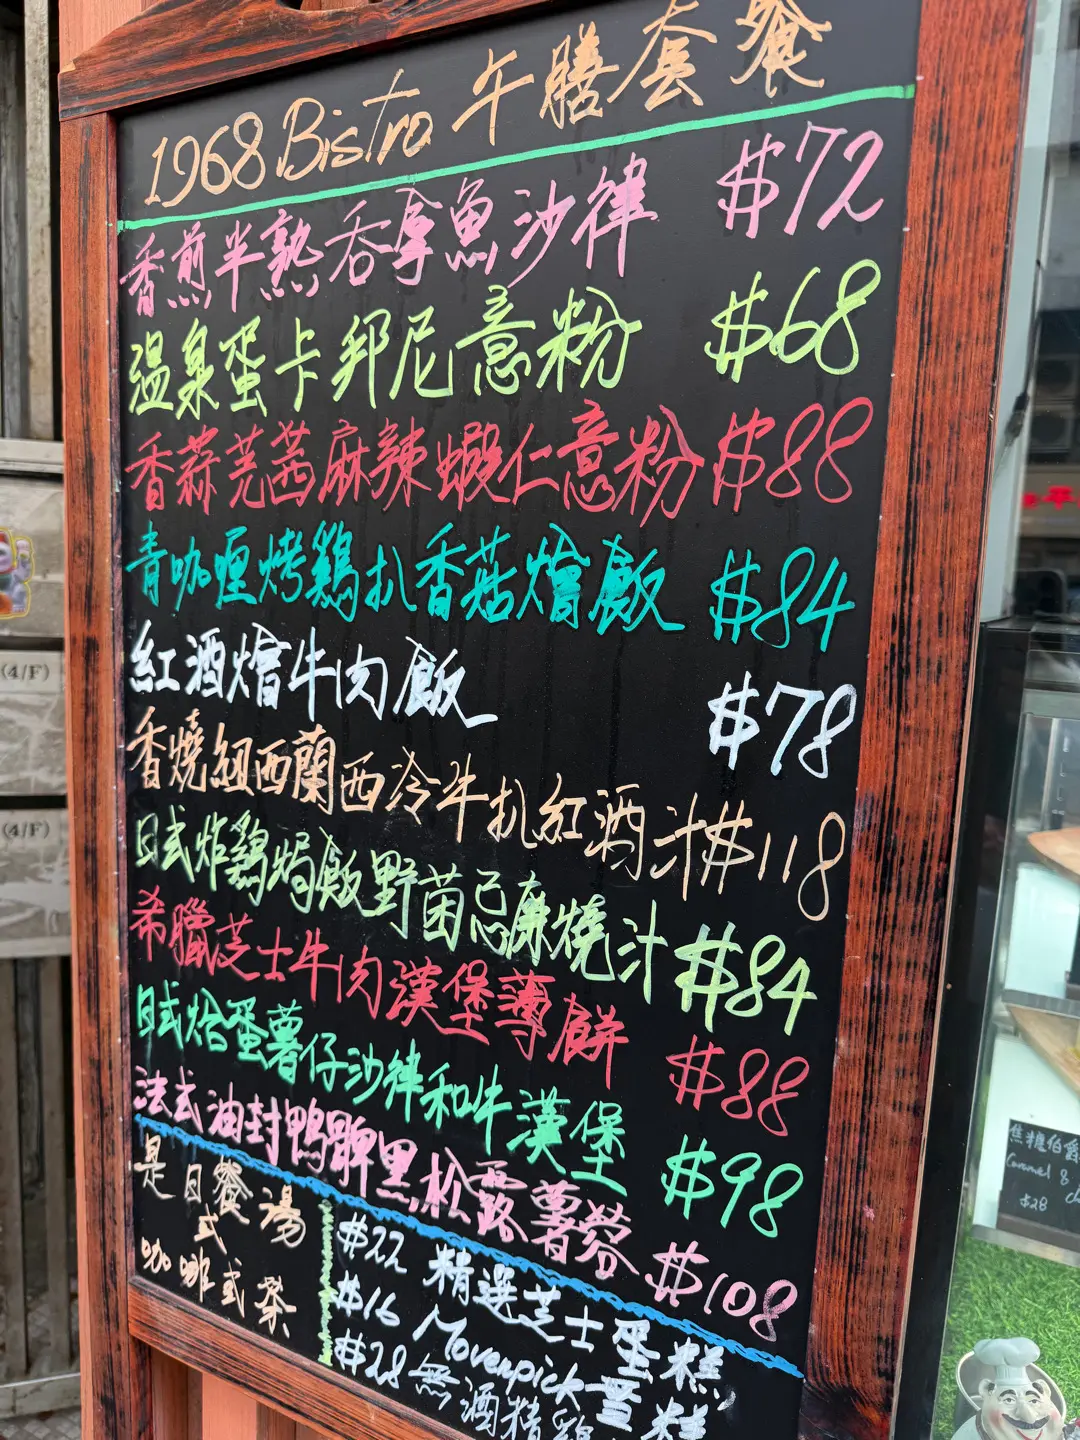 1968 Bistro 午膳套餐
香煎半熟吞拿魚沙律 $72
溫泉蛋卡邦尼意粉 $68
香蒜芫茜麻辣蝦仁意粉 $88
青咖喱烤鷄扒香菇燴飯 $84
紅酒燴牛肉飯 $78
香燒紐西蘭西冷牛扒紅酒汁 $118
日式炸鷄焗飯野菌忌廉燒汁 $84
希臘芝士牛肉漢堡薄餅 $88
日式燴蛋薯仔沙律和牛漢堡 $98
法式油封鴨脾黑松露薯蓉 $108
是日餐湯
式
咖啡式茶
$22 精選芝士蛋糕
$16 Movenpick雪糕
$28 無酒精雞
(4/F)
(4/F)
焦糖伯爵
Caramel &
$28